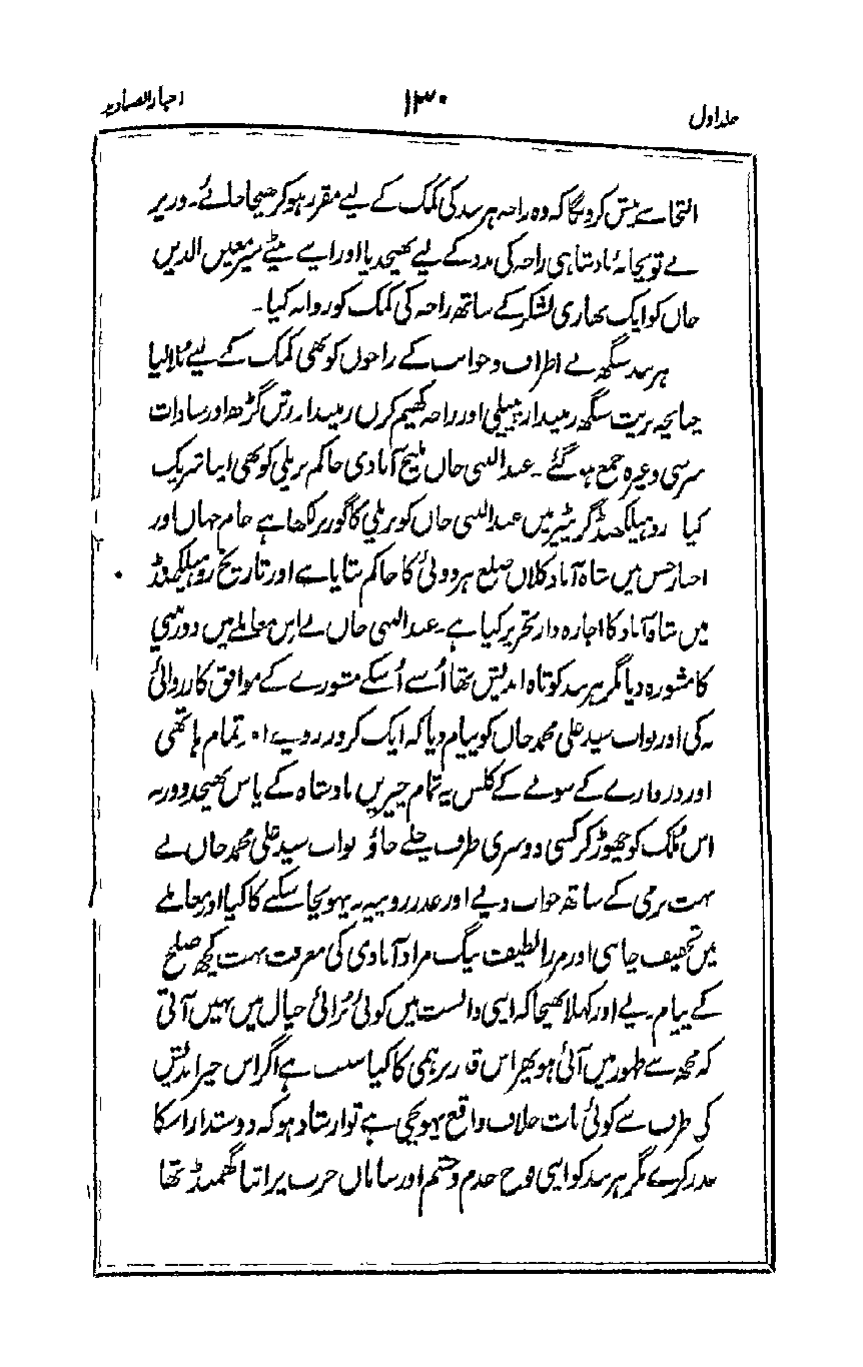 جلد اول ۱۳۰ اخبار الصنادید
التجا سے پیش کروں گا کہ وہ راجہ ہرنند کی کمک کے لیے مقرر ہو کر بھیجا جائے۔ وزیر
نے توپخانہ بادشاہی راجہ کی مدد کے لیے بھیجدیا اور اپنے بیٹے میر معین الدین
خاں کو ایک بھاری لشکر کے ساتھ راجہ کی کمک کو روانہ کیا۔
ہرنند سنگھ نے اطراف و جوانب کے راجوں کو بھی کمک کے لیے بُلا لیا
چنانچہ پرت سنگھ زمیندار اور راجہ کھیم کرن زمیندار رتن گڑھ اور سادات
سرسی وغیرہ جمع ہو گئے۔ عبدالنبی خاں ملیح آبادی حاکم بریلی کو بھی اپنا شریک
کیا روہیلکھنڈ گزیٹیر میں عبدالنبی خاں کو بریلی کا گورنر لکھا ہے جام جہاں اور
اخبار حسن میں شاہ آباد کلاں ضلع ہردوئی کا حاکم بتایا ہے اور تاریخ روہیلکھنڈ
میں شاہ آباد کا اجارہ دار تحریر کیا ہے۔ عبدالنبی خاں نے اس معاملے میں دوربینی
کا مشورہ دیا مگر ہرنند کوتاہ اندیش تھا اُسے اُسکے مشورے کے موافق کارروائی
نہ کی اور نواب سید علی محمد خاں کو پیام دیا کہ ایک کرور روپے اور تمام ہاتھی
اور دروازے کے سونے کے کلس یہ تمام چیزیں بادشاہ کے پاس بھیجدو ورنہ
اس مُلک کو چھوڑ کر کسی دوسری طرف چلے جاؤ نواب سید علی محمد خاں نے
بہت نرمی کے ساتھ جواب دیے اور عذر روپیہ نہ پہونچا سکنے کا کیا اور معاملے
میں تخفیف چاہی اور مرزا لطیف بیگ مرادآبادی کی معرفت بہت کچھ صلح
کے پیام دیے اور کہلا بھیجا کہ اپنی دانست میں کوئی بُرائی خیال میں نہیں آتی
کہ مجھ سے ظہور میں آئی ہو پھر اس قدر برہمی کا کیا سبب ہے اگر اس خیر اندیش
کی طرف سے کوئی بات خلاف واقع پہونچی ہے تو ارشاد ہو کہ دوستدار اسکا
عذر کرے مگر ہرنند کو اپنی فوج خدم و حشم اور سامان حرب پر اتنا گھمنڈ تھا